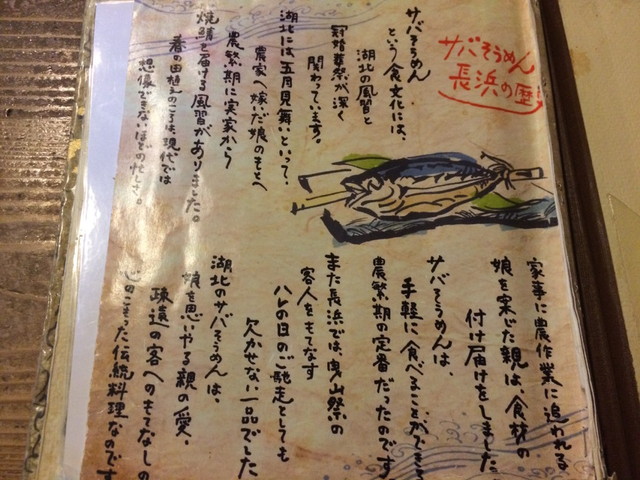 サバそうめん
長浜の歴
サバそうめん
という食文化には、
湖北の風習と
冠婚葬祭が深く
関わっています。
湖北には五月見舞いといって、
農家へ嫁いだ娘のもとへ
農繁期に実家から
焼鯖を届ける風習がありました。
春の田植えのころは、現代では
想像できないほどの忙しさ。
家事に農作業に追われる
娘を案じた親は、食材の
付け届けをしました
サバそうめんは、
手軽に食べることができる
農繁期の定番だったのです
また長浜では、曳山祭の
客人をもてなす
ハレの日のご馳走としても
欠かせない一品でした
湖北のサバそうめんは、
娘を思いやる親の愛、
疎遠の客へのもてなしの
心のこもった伝統料理なのです